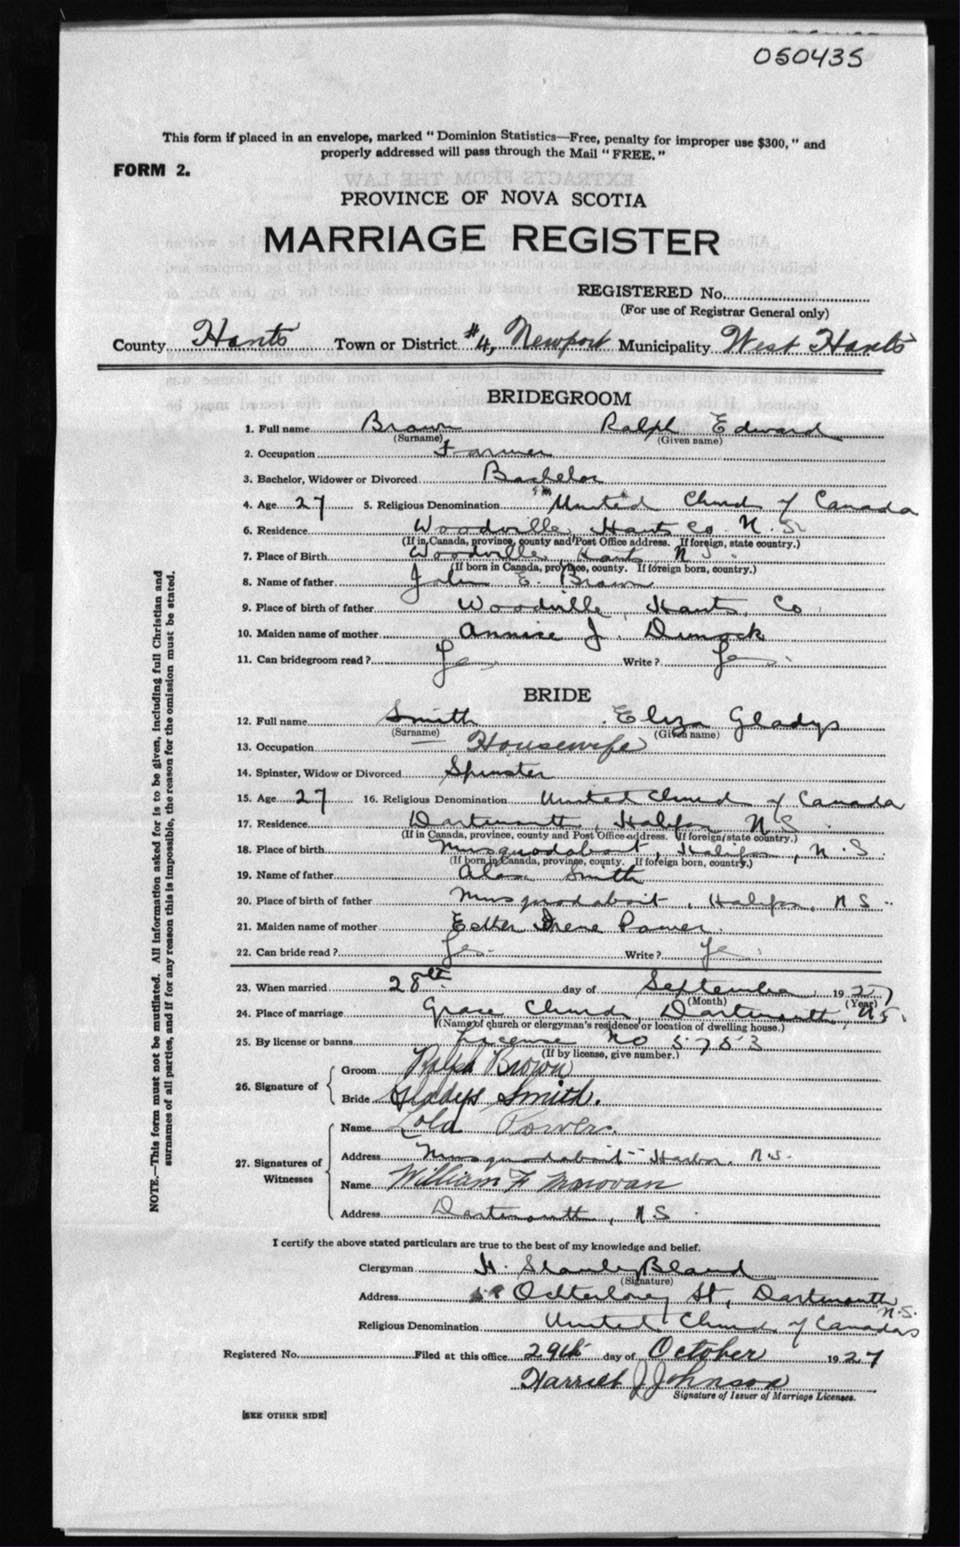 050435
This form if placed in an envelope, marked "Dominion Statistics—Free, penalty for improper use $300," and
properly addressed will pass through the Mail "FREE."
FORM 2.
PROVINCE OF NOVA SCOTIA
MARRIAGE REGISTER
REGISTERED No.
(For use of Registrar General only)
County Hants Town or District #4, Newport Municipality West Hants
BRIDEGROOM
1. Full name Brown Ralph Edward
(Surname) (Given name)
2. Occupation Farmer
3. Bachelor, Widower or Divorced Bachelor
4. Age 27 5. Religious Denomination United Church of Canada
6. Residence Woodville, Hants Co. N.S.
(If in Canada, province, county and Post Office address. If foreign, state country.)
7. Place of Birth Woodville Hants N.S.
(If born in Canada, province, county. If foreign born, country.)
8. Name of father John E. Brown
9. Place of birth of father Woodville, Hants, Co.
10. Maiden name of mother Annise J. Dimock
11. Can bridegroom read? Yes Write? Yes
BRIDE
12. Full name Smith Eliza Gladys
(Surname) (Given name)
13. Occupation Housewife
14. Spinster, Widow or Divorced Spinster
15. Age 27 16. Religious Denomination United Church of Canada
17. Residence Dartmouth, Halifax N.S.
(If in Canada, province, county and Post Office address. If foreign state country.)
18. Place of birth Musquodoboit, Halifax, N.S.
(If born in Canada, province, county. If foreign born, country.)
19. Name of father Smith
20. Place of birth of father Musquodoboit, Halifax, N.S.
21. Maiden name of mother Esther Irene Power
22. Can bride read? Yes Write? Yes
23. When married 28th day of September 1927
(Month) (Year)
24. Place of marriage Grace Church, Dartmouth, N.S.
(Name of church or clergyman's residence or location of dwelling house.)
25. By license or banns License No 5753
(If by license, give number.)
26. Signature of
Groom Ralph Brown
Bride Gladys Smith.
27. Signatures of Witnesses
Name Lola Powers.
Address Musquodoboit Harbor, N.S.
Name William F Monovan
Address Dartmouth, N.S.
I certify the above stated particulars are true to the best of my knowledge and belief.
Clergyman H. Stanley Bland
(Signature)
Address Ochterloney St, Dartmouth N.S.
Religious Denomination United Church of Canada
Registered No. Filed at this office 29th day of October 1927
Harriet J Johnson
Signature of Issuer of Marriage Licenses.
[SEE OTHER SIDE]
NOTE.—This form must not be mutilated. All information asked for is to be given, including full Christian and
surnames of all parties, and if for any reason this is impossible, the reason for the omission must be stated.